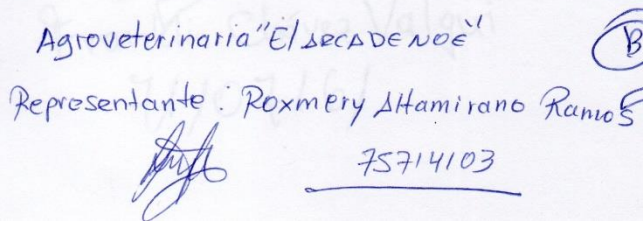 Agroveterinaria "El ARCA DE NOÉ"
B
Representante : Roxmery Altamirano Ramos
75714103